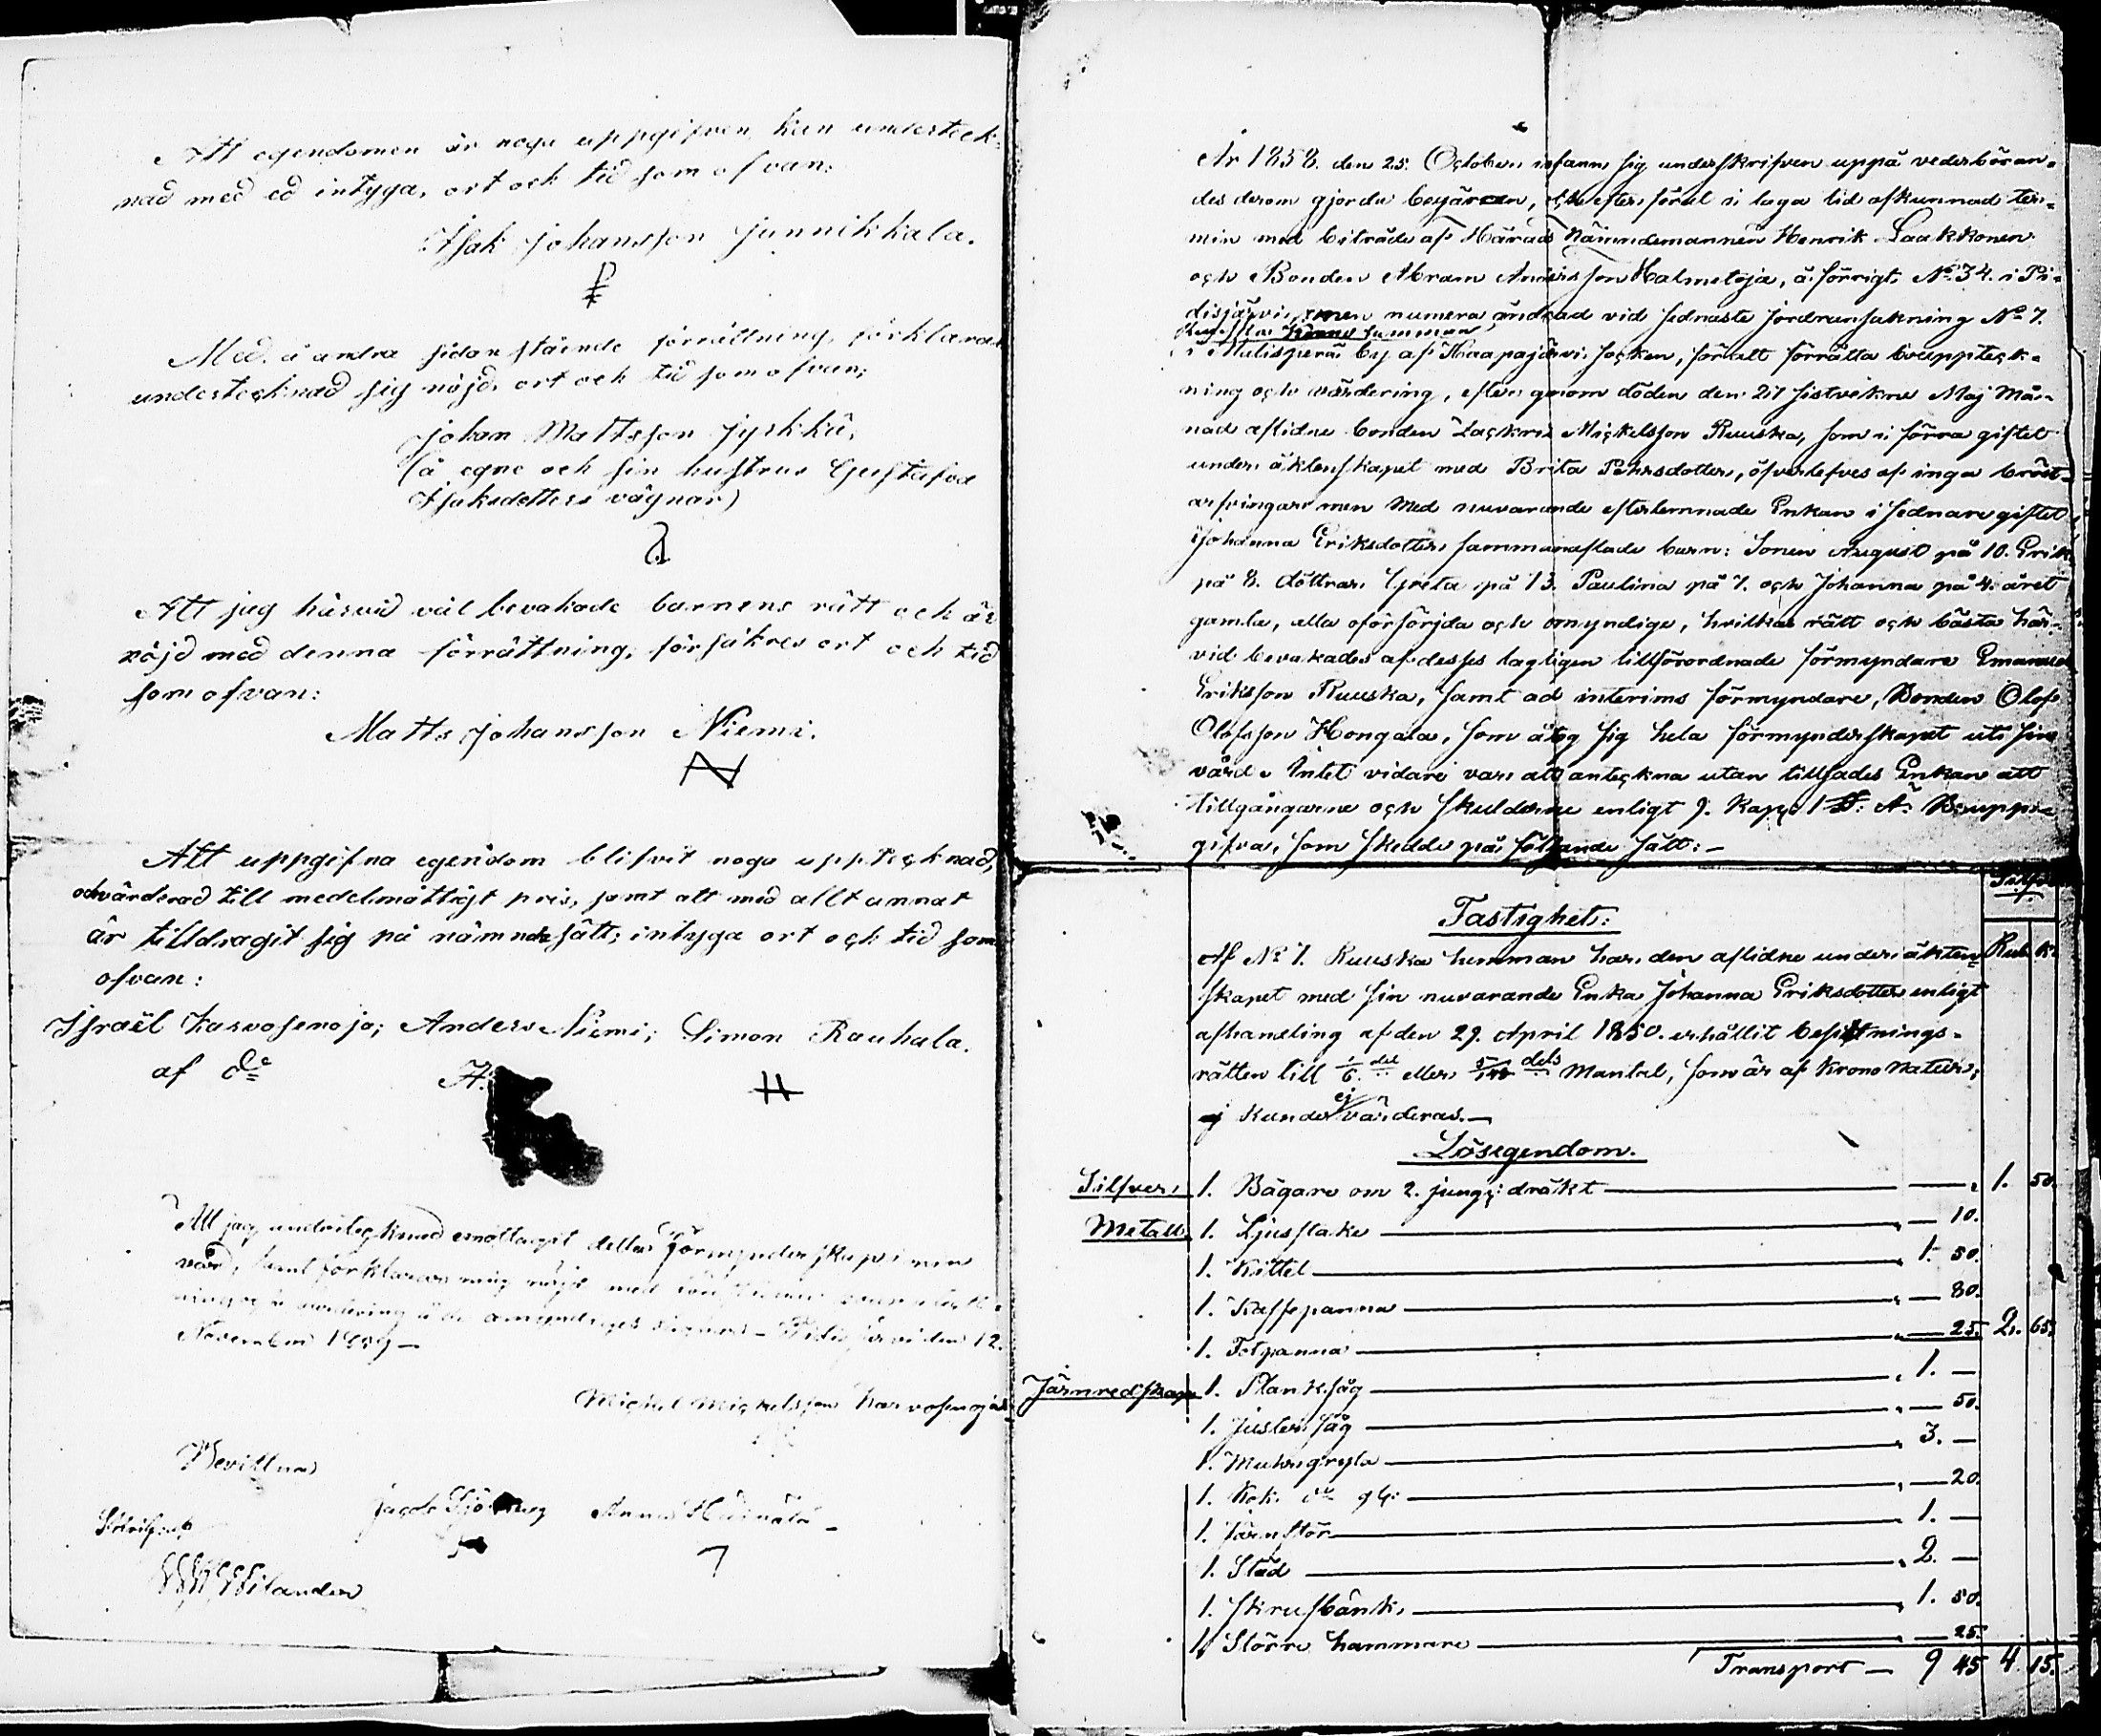 Att egendomen är noga uppgifven kan underteck-
nad med ed intyga, ort och tid som ofvan:
Isak Johansson Junnikkala.
Med å andra sidan stående förrättning, förklarar
undertecknad sig nöjd, ort och tid som ofvan;
Johan Mattsson Jyrkkä,
(å egne och sin hustrus Gustafva
Isaksdotters vägnar)
Att jag härvid väl bevakade barnens rätt och är
nöjd med denna förrättning, försäkras ort och tid
som ofvan:
Matts Johansson Niemi.
Att uppgifna egendom blifvit noga uppteçknad,
och värderad till medelmåttigt pris, samt att med allt annat
är tilldragit sig på nämnde sätt; intyga ort och tid som
ofvan:
Israël Karvosenoja; Anders Niemi; Simon Rauhala.
af dc
Att jag undertecknad emottagit detta Förmynderskap i min
vård, samt förklarar mig nöjd med
värdering å de omyndiges vägnar – Pidisjärvi den 12.
November 1859 –
Michel Mickelsson Karvosenoja
Bevittna
Jacob Sjöberg Anna
Wilander
År 1858. den 25. October infann sig underskrifven uppå vederböran-
des derom gjorde begäran, och efter förut i laga tid afkunnad ter-
min med biträde af Härads Nämndemannen Henrik Laakkonen
och Bonden Abram Andersson Halmetoja, å förrigt No 34. i Pi-
disjärvi, men numera ändrad vid sednaste jordransakning No 7.
Ruuska Krono hemman
i Maliskperä by af Haapajärvi socken, för att förrätta bouppteck-
ning och värdering, efter genom döden den 21 sistvekne Maj Må-
nad aflidne bonden Zackris Mickelsson Ruuska, som i förra giftet
under äktenskapet med Brita Pehrsdotter, öfverlefves af inga bröst-
arfvingar men med nuvarande efterlemnade Enkan i sednare giftet
Johanna Eriksdotter sammanaflade barn: Sonen August på 10. Erik
på 8. döttrar Greta på 13. Paulina på 7. och Johanna på 4. året
gamla, alla oförsörjda och omyndige, hvilkas rätt och bästa här-
vid bevakades af desses lagligen tillförordnade förmyndare Emanuel
Eriksson Ruuska, samt ad interims förmyndare, Bonden Olof
Olofsson Hongala, som åtog sig hela förmynderskapet uti sin
vård. Intet vidare var att anteckna utan tillsades Enkan att
tillgångarne och skulderne enligt 9. Kap. 1 §: Ä. B. uppr-
gifva, som skedde på följande sätt: –
Silfver
Rub. K.
Fastighet:
Af No 7. Ruuska hemman har den aflidne under äkten-
skapet med sin nuvarande Enka Johanna Eriksdotter enligt
afhandling af den 29. April 1850. erhållit besittnings-
rätten till 1/6. del eller dels Mantal, som är af Krono Natur,
ej kunde värderas. –
Lösegendom.
Silfver: 1. Bägare om 2. jungf: dräkt 1. 50.
Metall: 1. Ljusstake – 10.
1. Kittel 1. 50.
1. Kaffepanna – 80.
1. Fotpanna – 25. 2. 65.
Järnredskap 1. Planksåg 1. –
1. Justersåg – 50.
1. Murgryta 3. –
1. Kok. do – 20.
1. Järnstör 1. –
1. Städ 2. –
1. Skrufbänk 1. 50.
1 Större hammare – 25.
Transport – 9 45 4. 15.